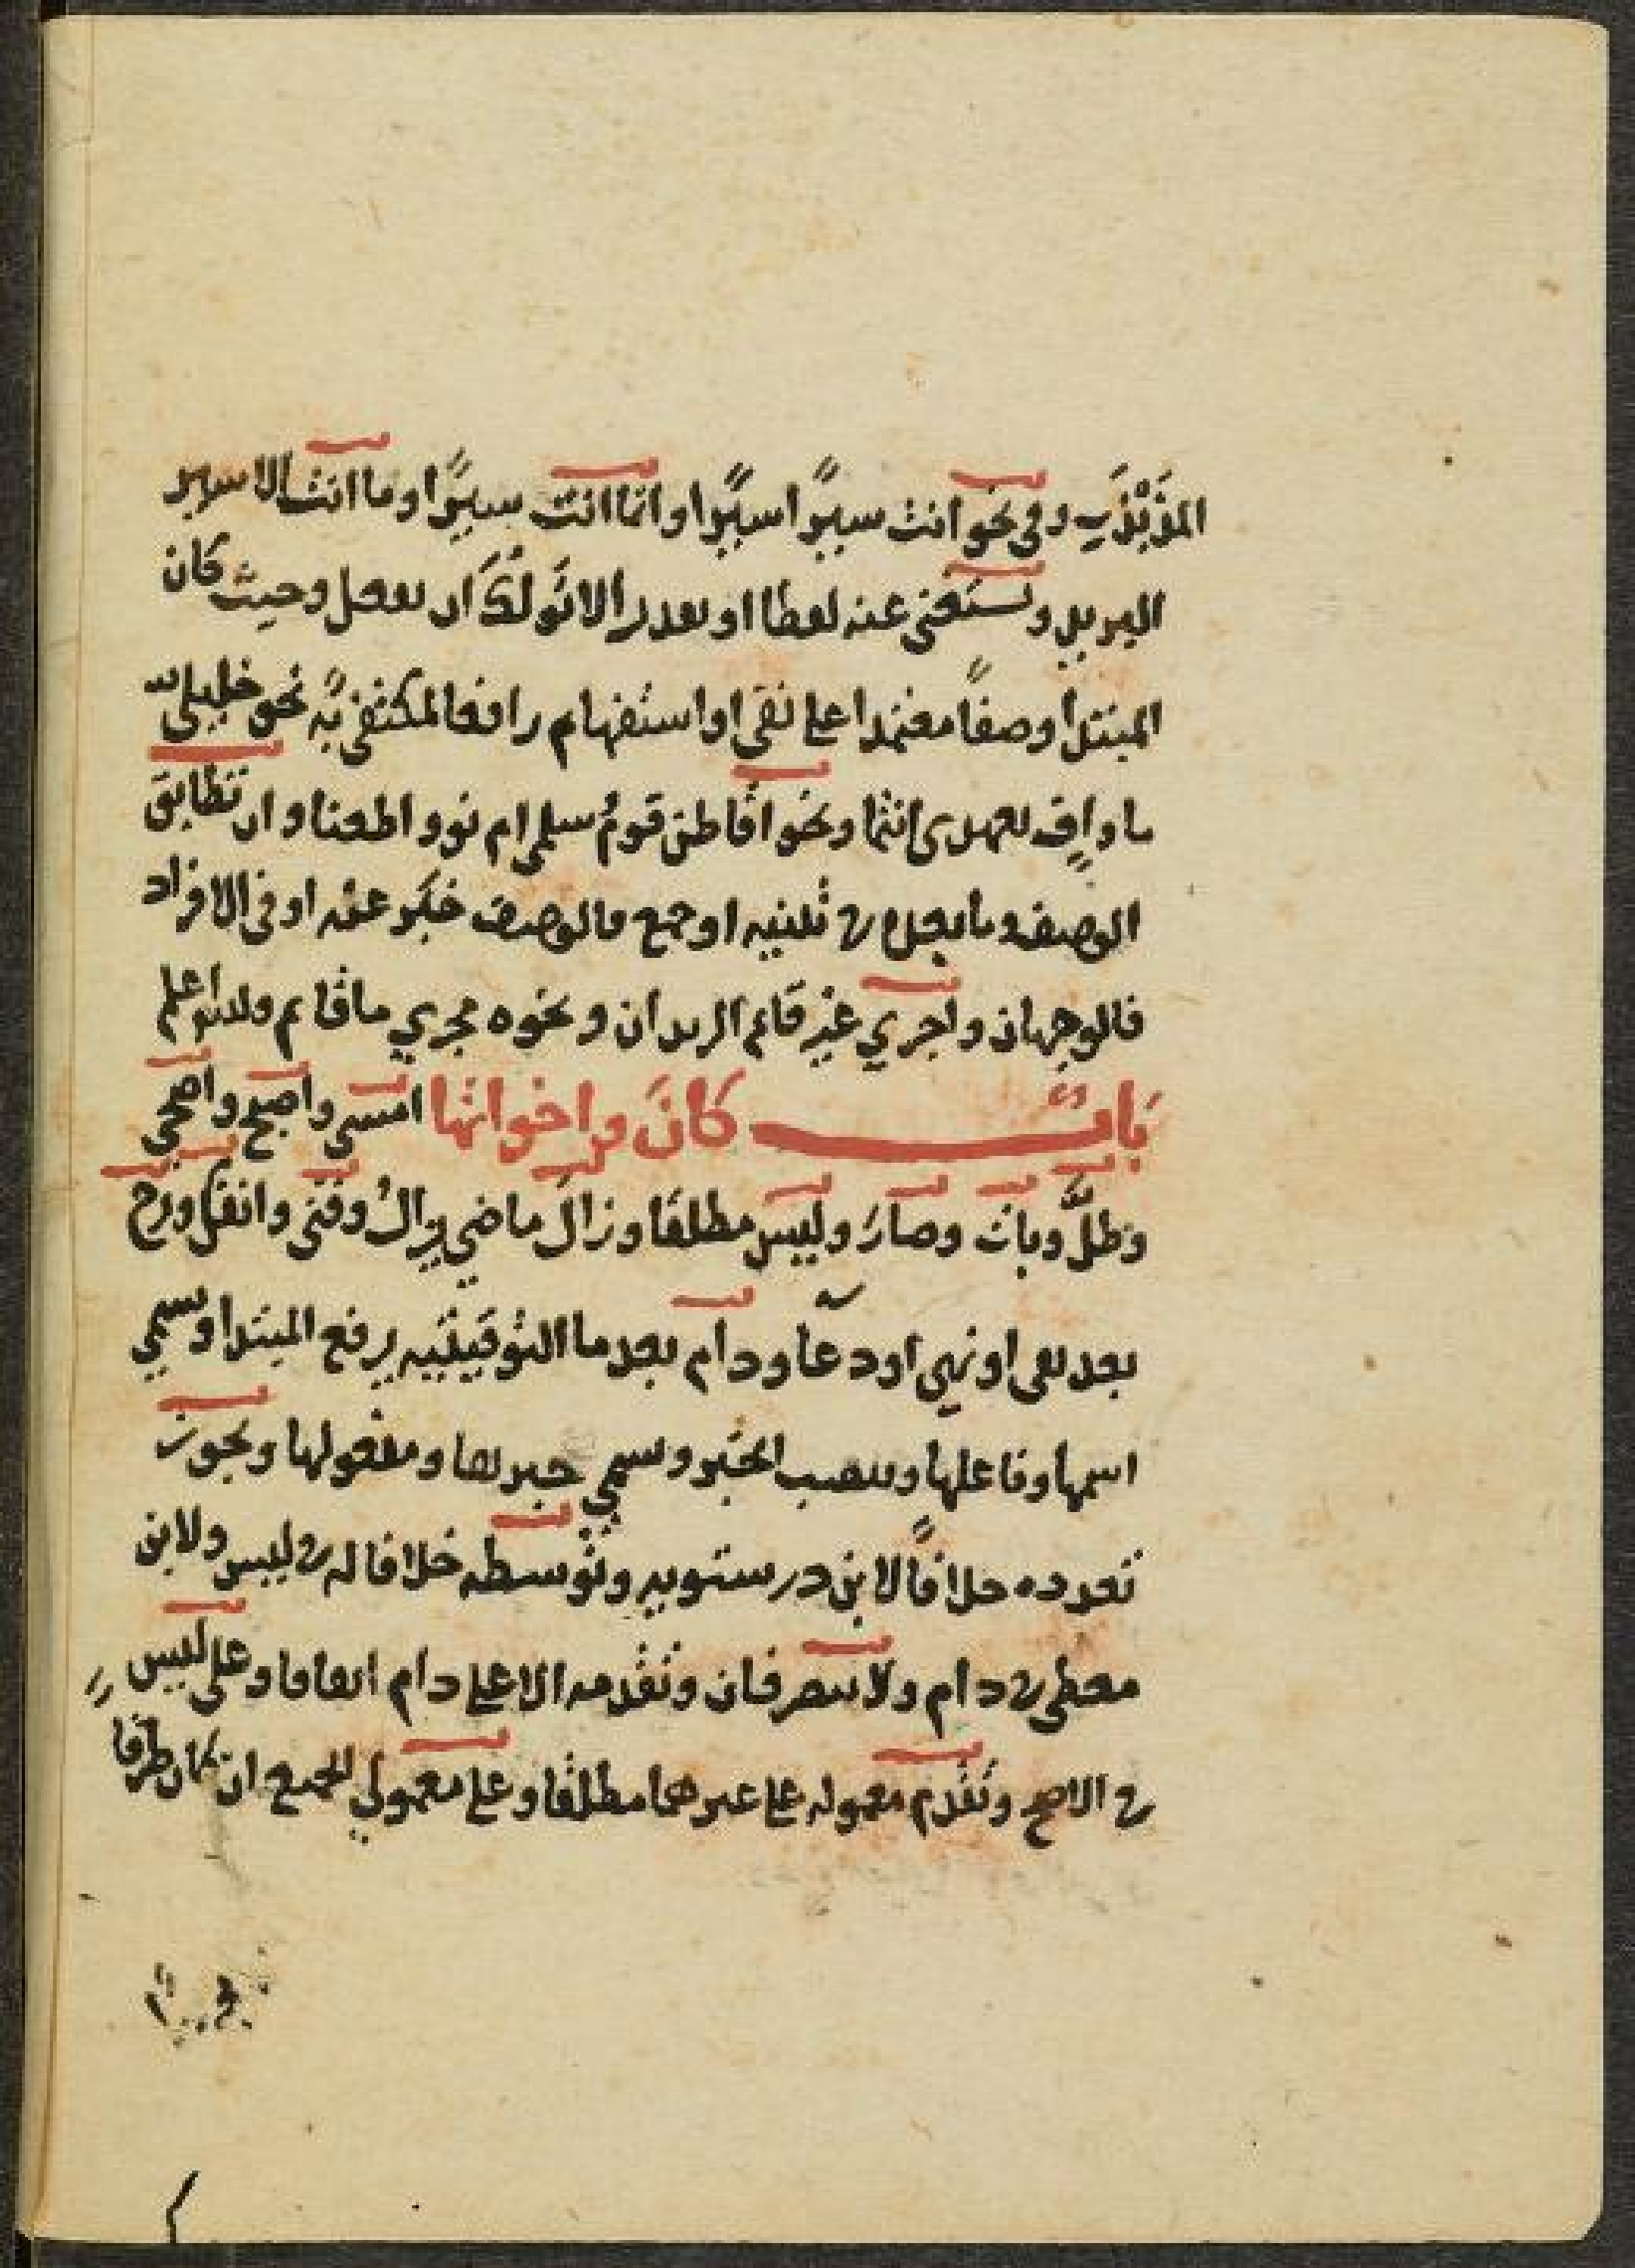 المذبذب وفى نحو انت سيرًا سيرًا او انما انت سيرًا او ما انت الا سير
البريد ويستغنى عنه لفظا او تقديرا لا نولك ان تفعل وحيث كان
المبتدا وصفًا معتمدا على نفى او استفهام رافعا لمكتفى به نحو خليلىّ
ما وافٍ بعهدى انتما ونحو اقاطن قومُ سلمى ام نووا ظعنا وان تطابق
الوصف وما بعده فى تثنيه او جمع فالوصف خبر عنه او فى الافراد
فالوجهان واجري غير قايم الزيدان ونحوه مجري ما قايم
بابٌ كانَ واخواتها امسى واصبح واضحى
وظلَّ وبات وصارَ وليس مطلقا وزالَ ماضي يزالُ وفتى وانفك وبرح
بعد نفى او نهى او دعا ودام بعد ما التوقيتيه يرفع المبتدا وسمى
اسمها وفاعلها وينصب الخبر وسمي خبرها ومفعولها ويجوز
تعدده خلافًا لابن درستويه وتوسطه خلافا له فى ليس ولابن
معطى فى دام ولا يتصرفان وتقدمه الا على دام اتفاقا وعلى ليس
فى الاصح وتقدم معموله على غيرهما مطلقا وعلى معمولي الجميع ان كان ظرفا